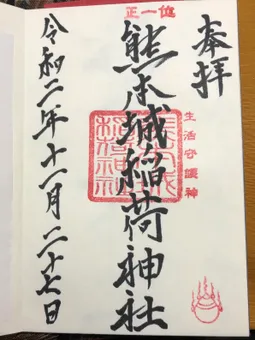 奉拝
生活守護神
正一位
熊本城稲荷神社
令和二年十一月二十七日